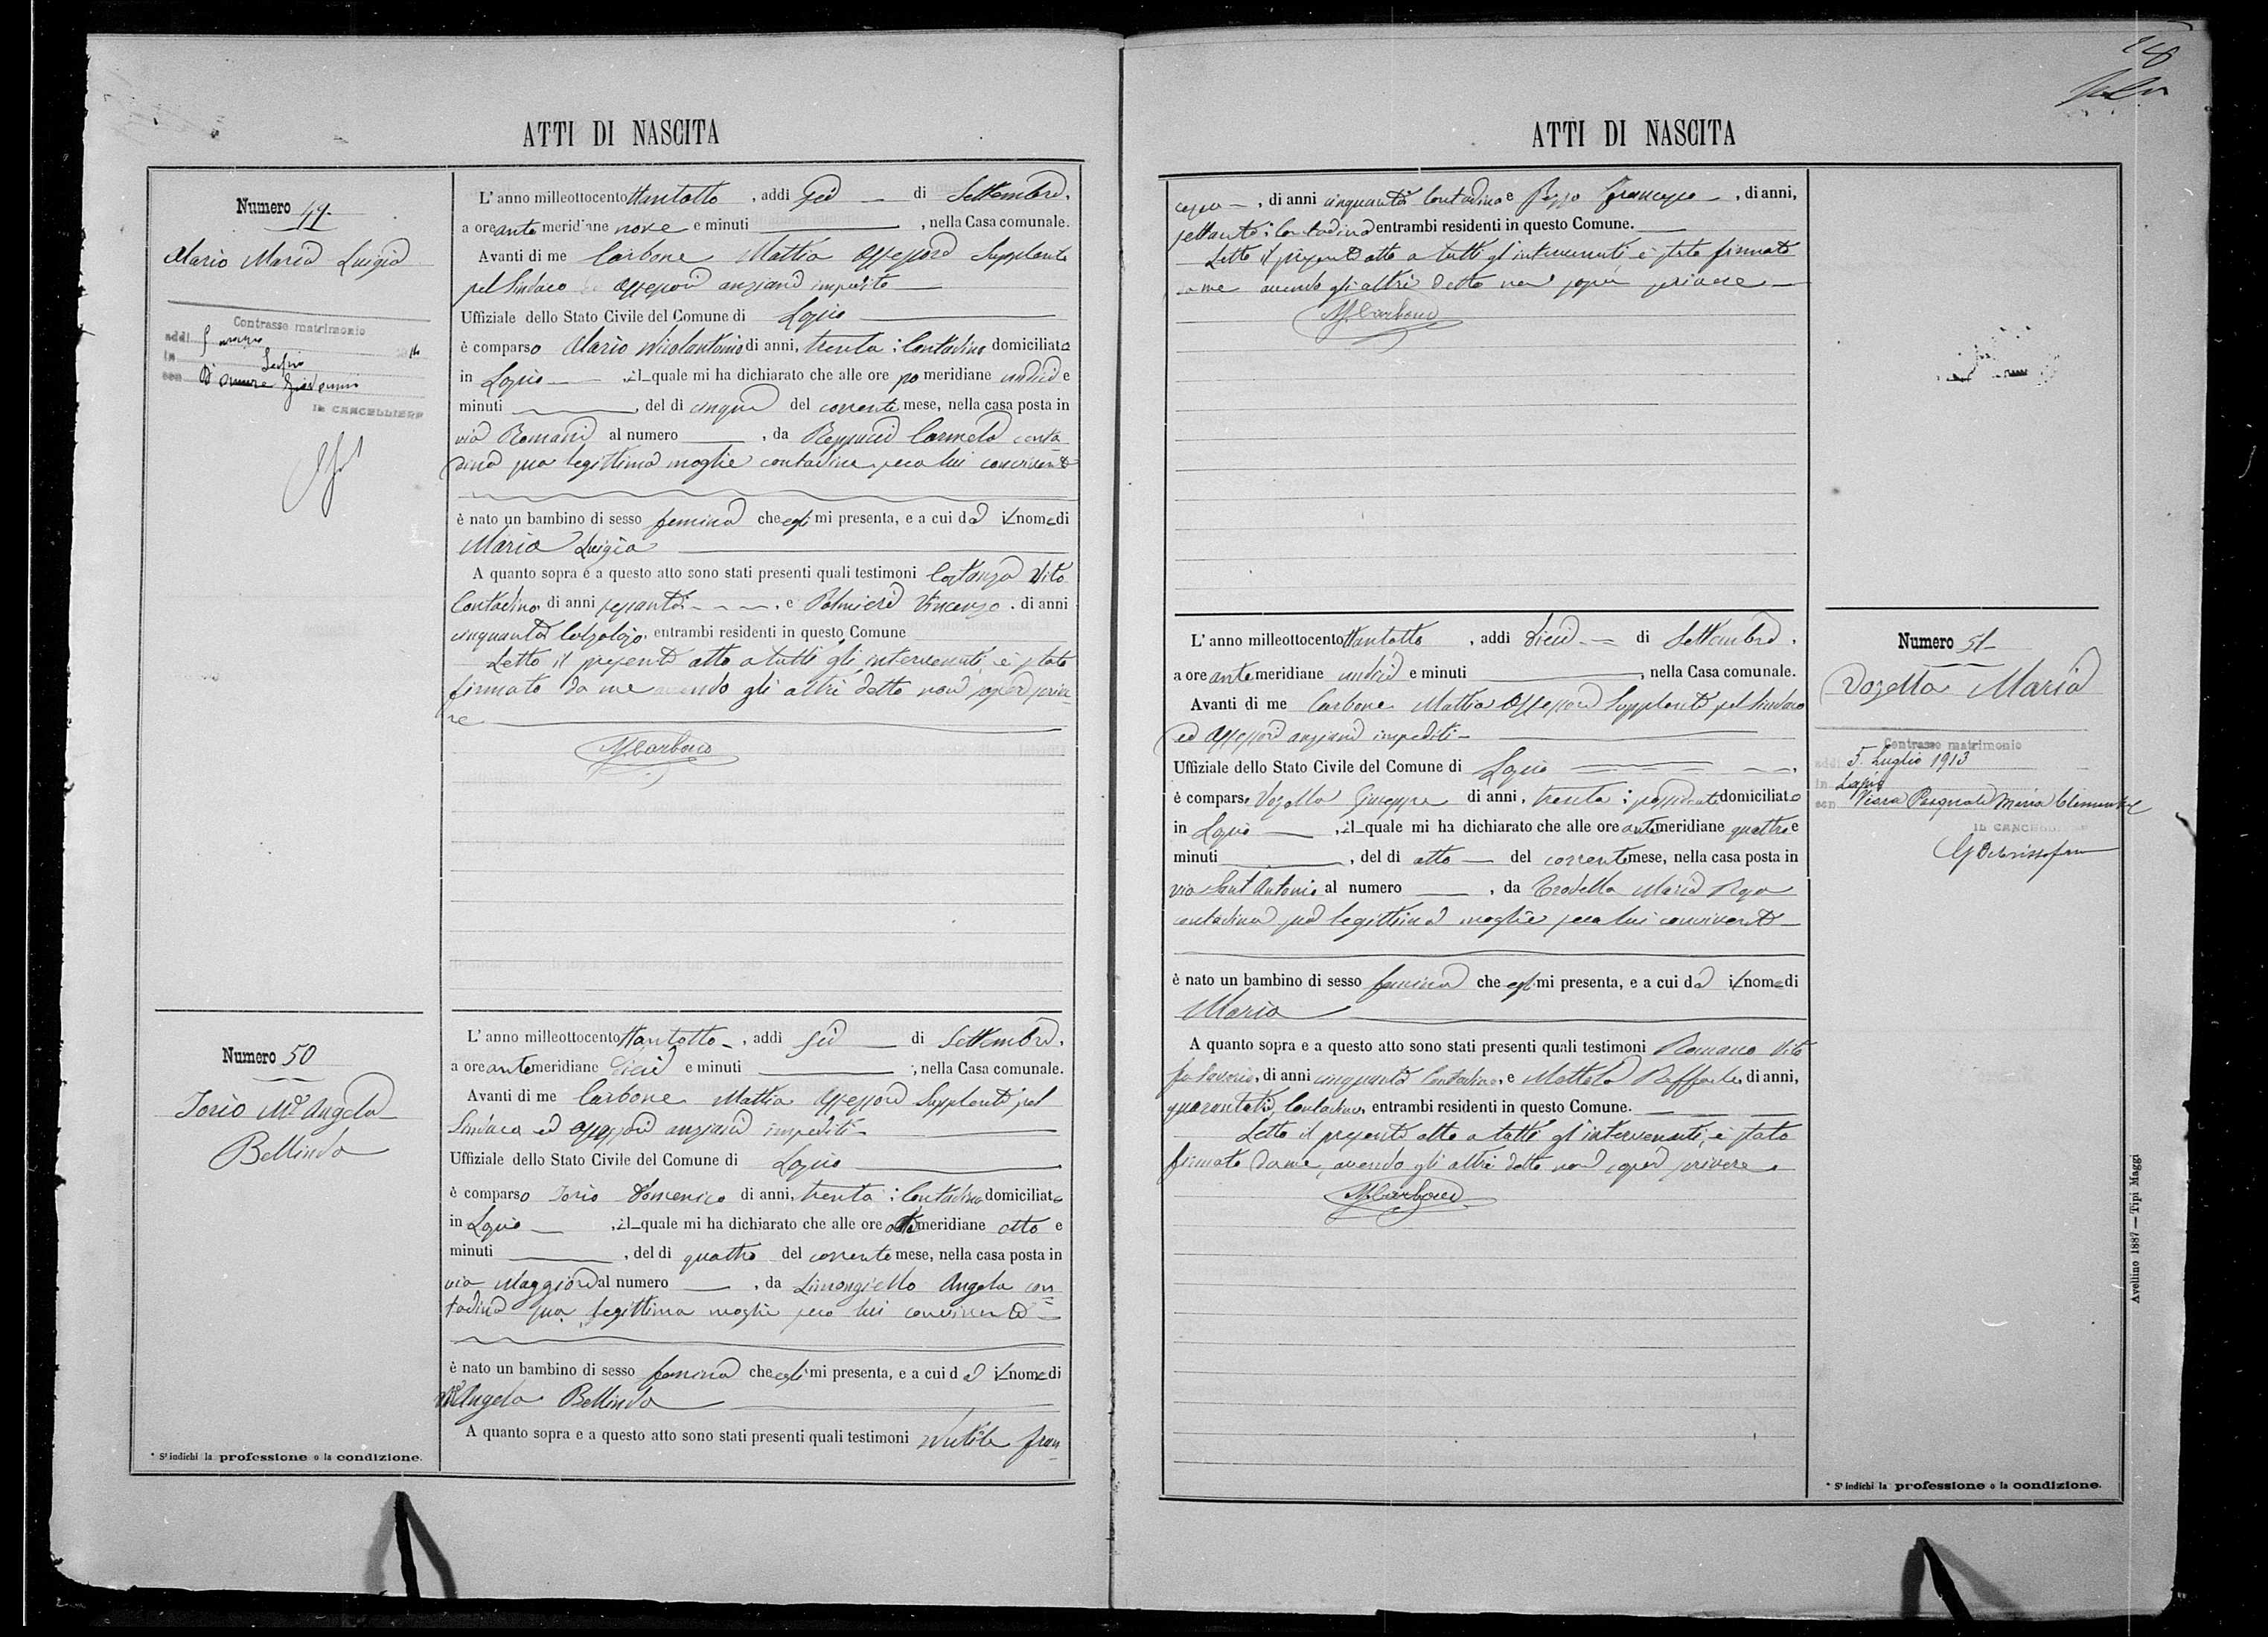 ATTI DI NASCITA
Numero 49.
Mario Maria Luigia
Contrasse matrimonio
addi
in Lapio
con D'Amore Giovanni
IL CANCELLIERE
L'anno milleottocentottantotto, addì sei di Settembre,
a ore ante meridiane nove e minuti, nella Casa comunale.
Avanti di me Carbone Mattia Assessore Supplente
pel Sindaco Assessori anziani impediti
Uffiziale dello Stato Civile del Comune di Lapio
è comparso Mario Nicolantonio di anni, trenta: Contadino domiciliato
in Lapio, il quale mi ha dichiarato che alle ore po meridiane undici e
minuti, del dì cinque del corrente mese, nella casa posta in
via Romani al numero, da Reppucci Carmela conta
dina sua legittima moglie contadina, seco lui convivente
è nato un bambino di sesso feminino che egli mi presenta, e a cui dà il nome di
Maria Luigia
A quanto sopra e a questo atto sono stati presenti quali testimoni Costanza Vito
Contadino di anni sessanta, e Palmieri Vincenzo, di anni
cinquanta Calzolajo, entrambi residenti in questo Comune
Letto il presente atto a tutti gli intervenuti, è stato
firmato da me avendo gli altri detto non saper scrive-
re
M Carbone
Numero 50
Iorio Mª Angela
Bellinda
L'anno milleottocentottantotto, addì sei di Settembre,
a ore antemeridiane dieci e minuti, nella Casa comunale.
Avanti di me Carbone Mattia Assessore Supplente pel
Sindaco ed Assessori anziani impediti
Uffiziale dello Stato Civile del Comune di Lapio
è comparso Iorio Domenico di anni, trenta: Contadino domiciliato
in Lapio, il quale mi ha dichiarato che alle ore antemeridiane otto e
minuti, del dì quattro del corrente mese, nella casa posta in
via Maggiore al numero, da Limongiello Angela con
tadina sua legittima moglie seco lui convivente
è nato un bambino di sesso feminino che egli mi presenta, e a cui dà il nome di
Mª Angela Bellinda
A quanto sopra e a questo atto sono stati presenti quali testimoni Nutile Fran-
* S'indichi la professione o la condizione.
ATTI DI NASCITA
cesco, di anni cinquanta Contadino e Pezzo Francesco, di anni,
settanta: Contadino entrambi residenti in questo Comune.
Letto il presente atto a tutti gl'intervenuti è stato firmato
da me avendo gli altri detto non saper scrivere
M Carbone
L'anno milleottocentottantotto, addì dieci di Settembre,
a ore antemeridiane undici e minuti, nella Casa comunale.
Avanti di me Carbone Mattia Assessore Supplente pel Sindaco
ed Assessori anziani impediti
Uffiziale dello Stato Civile del Comune di Lapio
è comparso Vozella Giuseppe di anni, trenta: possidente domiciliato
in Lapio, il quale mi ha dichiarato che alle ore antemeridiane quattro e
minuti, del dì otto del corrente mese, nella casa posta in
via Sant'Antonio al numero, da Trodella Maria Rosa
contadina sua legittima moglie seco lui convivente
è nato un bambino di sesso feminino che egli mi presenta, e a cui dà il nome di
Maria
A quanto sopra e a questo atto sono stati presenti quali testimoni Romano Vito
fu Saverio, di anni cinquanta Contadino, e Mottola Raffaele, di anni,
Contadino, entrambi residenti in questo Comune.
Letto il presente atto a tutti gl'intervenuti, è stato
firmato da me, avendo gli altri detto non saper scrivere.
M Carbone
Numero 51
Vozella Maria
Contrasse matrimonio
addi 5 Luglio 1913
in Lapio
con Pasquale Maria Clemente
IL CANCELLIERE
* S'indichi la professione o la condizione.
Avellino 1887 — Tipi Maggi